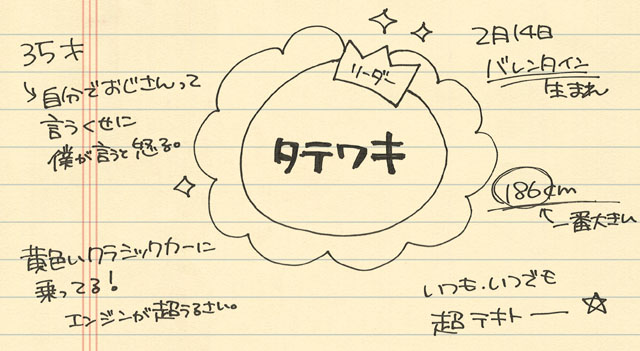 35才
自分でおじさんって
言うくせに
僕が言うと怒る。
リーダー
タテワキ
2月14日
バレンタイン
生まれ
186cm
一番大きい
黄色いクラシックカーに
乗ってる!
エンジンが超うるさい。
いつも、いつでも
超テキトー